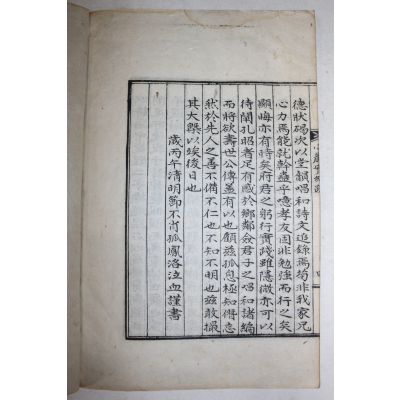 德狀碣次以堂韻唱和詩文追錄焉苟非我家兄
心力焉能就斡蠱乎噫孝友固非勉強而行之矣
顯晦亦有時矣府君之躬行實踐雖隱微亦可以
待闡孔昭者足有感於鄉鄰僉君子之唱和諸編
而將欲壽世公傳蓋有以也顧玆孤息極知僭忝
然於先人之善不備不仁也不知不明也玆敢撮
其大槩以竢後日也
歲丙午清明節不肖孤鳳洛泣血謹書